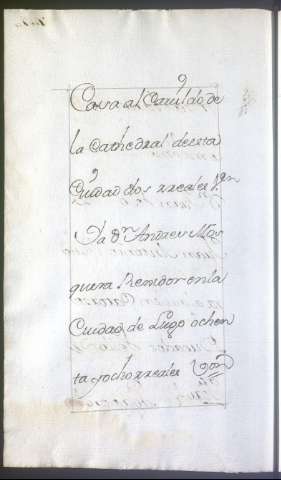 Casa al Cavildo de
la Cathedral de esta
Ciudad dos rreales Vn
Ya Dn Andres Mos
quera Rexidor en la
Ciudad de Lugo ochen
ta y ocho rreales Von